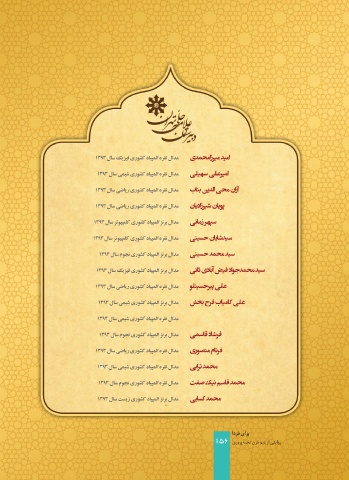 دبیرستان علامه حلی تهران
امید میرزامحمدی مدال نقره المپیاد کشوری فیزیک سال ۱۳۹۳
امیرعلی سهیلی مدال نقره المپیاد کشوری شیمی سال ۱۳۹۳
آران محی الدین بناب مدال نقره المپیاد کشوری ریاضی سال ۱۳۹۳
پویان شیرزادیان مدال نقره المپیاد کشوری ریاضی سال ۱۳۹۳
سپهر زمانی مدال برنز المپیاد کشوری کامپیوتر سال ۱۳۹۳
سیدشایان حسینی مدال نقره المپیاد کشوری کامپیوتر سال ۱۳۹۳
سید محمد حسینی مدال برنز المپیاد کشوری نجوم سال ۱۳۹۳
سید محمدجواد فرض آبادی ثانی مدال نقره المپیاد کشوری فیزیک سال ۱۳۹۳
علی پیرحسینلو مدال نقره المپیاد کشوری ریاضی سال ۱۳۹۳
علی کامیاب فرح بخش مدال برنز المپیاد کشوری شیمی سال ۱۳۹۲
مدال نقره المپیاد کشوری شیمی سال ۱۳۹۳
فرشاد قاسمی مدال برنز المپیاد کشوری نجوم سال ۱۳۹۳
فرنام منصوری مدال نقره المپیاد کشوری ریاضی سال ۱۳۹۳
محمد ترابی مدال نقره المپیاد کشوری شیمی سال ۱۳۹۳
محمد قاسم نیک صفت مدال نقره المپیاد کشوری نجوم سال ۱۳۹۳
محمد کسایی مدال برنز المپیاد کشوری زیست سال ۱۳۹۳
برای فردا
۱۵۶